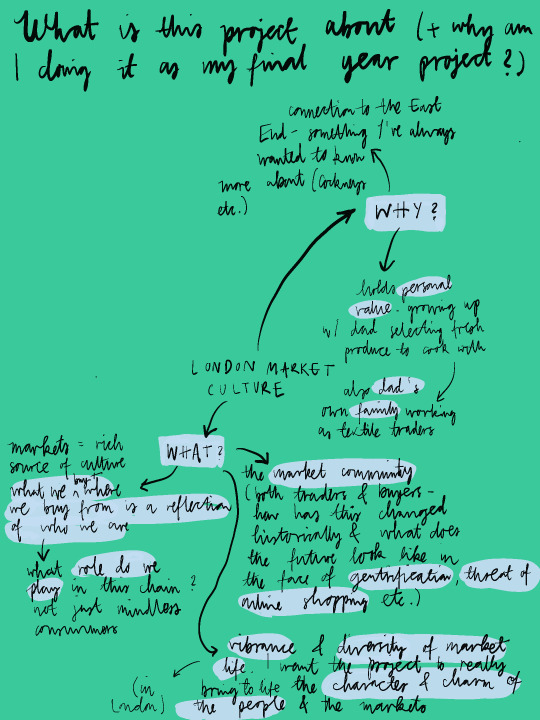 What is this project about (+ why am
I doing it as my final year project?)
connection to the East
End - something I've always
wanted to know
more about (Cockneys
etc.)
WHY?
holds personal
value - growing up
w/ dad selecting fresh
produce to cook with
also dad's
own family working
as textile traders
LONDON MARKET
CULTURE
WHAT?
markets = rich
source of culture
what we buy & where
we buy from is a reflection
of who we are
what role do we
play in this chain?
not just mindless
consumers
the market community
(both traders & buyers -
how has this changed
historically & what does
the future look like in
the face of gentrification, threat of
online shopping etc.)
vibrance & diversity of market
life. I want the project to really
bring to life the character & charm of
the people & the markets
(in
London)